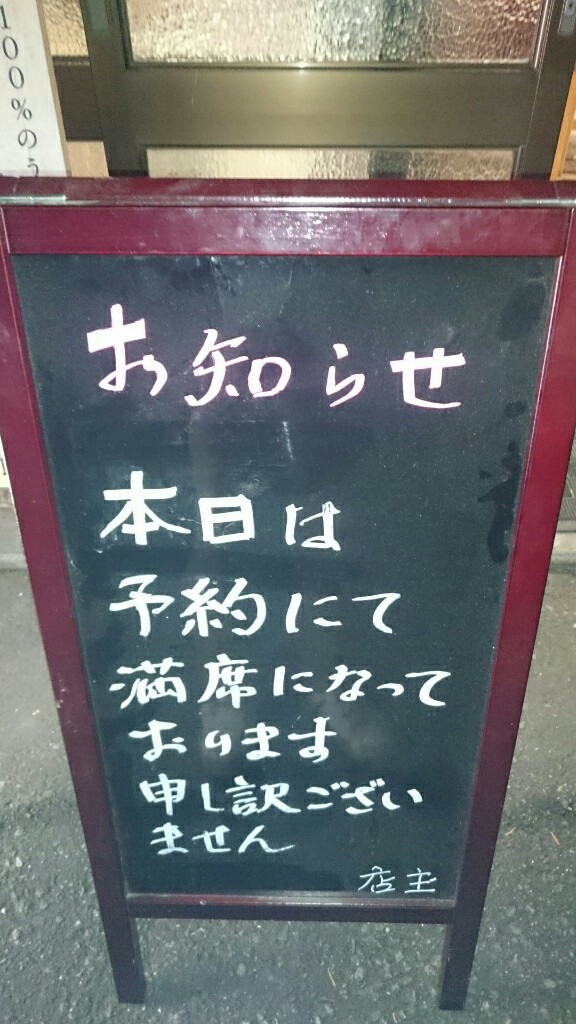 100%のう
お知らせ
本日は
予約にて
満席になって
おります
申し訳ござい
ません
店主